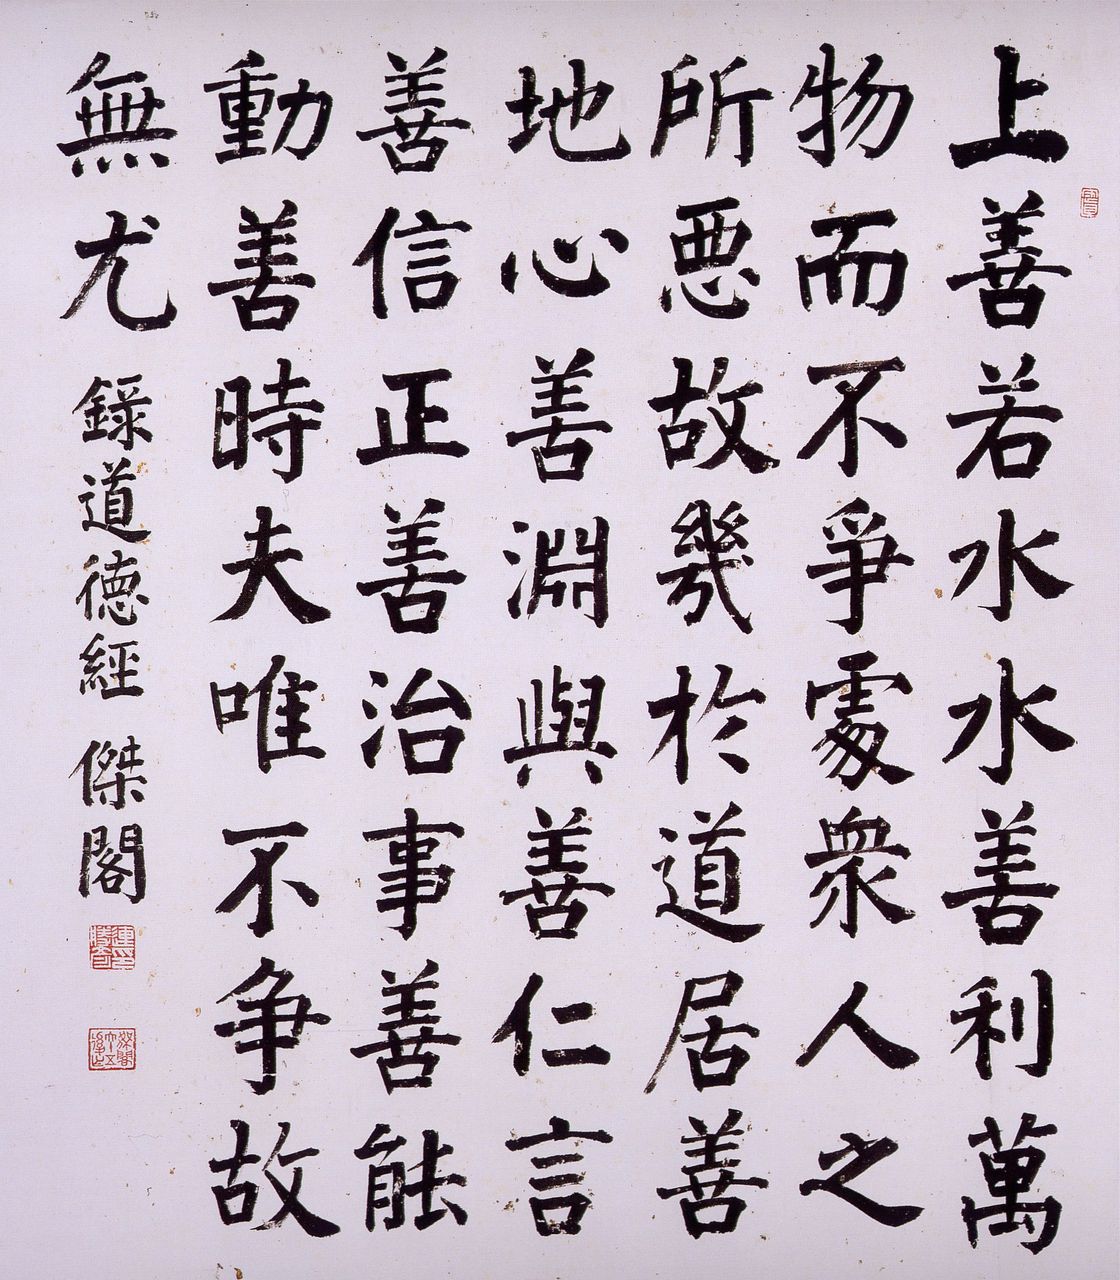 上善若水水善利萬
物而不爭處衆人之
所惡故幾於道居善
地心善淵與善仁言
善信正善治事善能
動善時夫唯不争故
無尤 錄道德經 傑閣